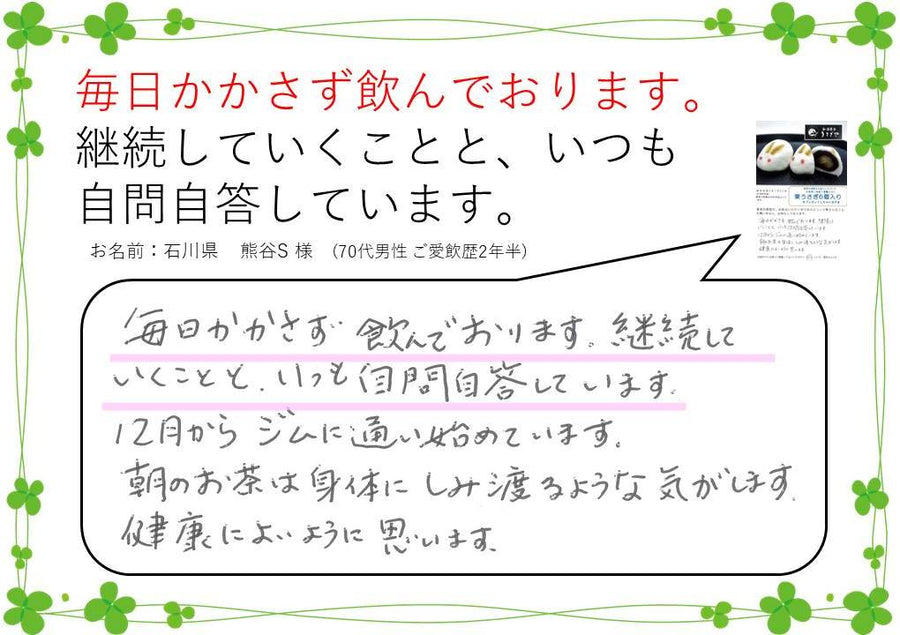 毎日かかさず飲んでおります。
継続していくことと、いつも
自問自答しています。
お名前：石川県　熊谷S 様　(70代男性 ご愛飲歴2年半)
毎日かかさず飲んでおります。継続して
いくことと、いつも自問自答しています。
12月から ジムに通い始めています。
朝のお茶は身体に しみ渡るような気がします。
健康によいように思います。